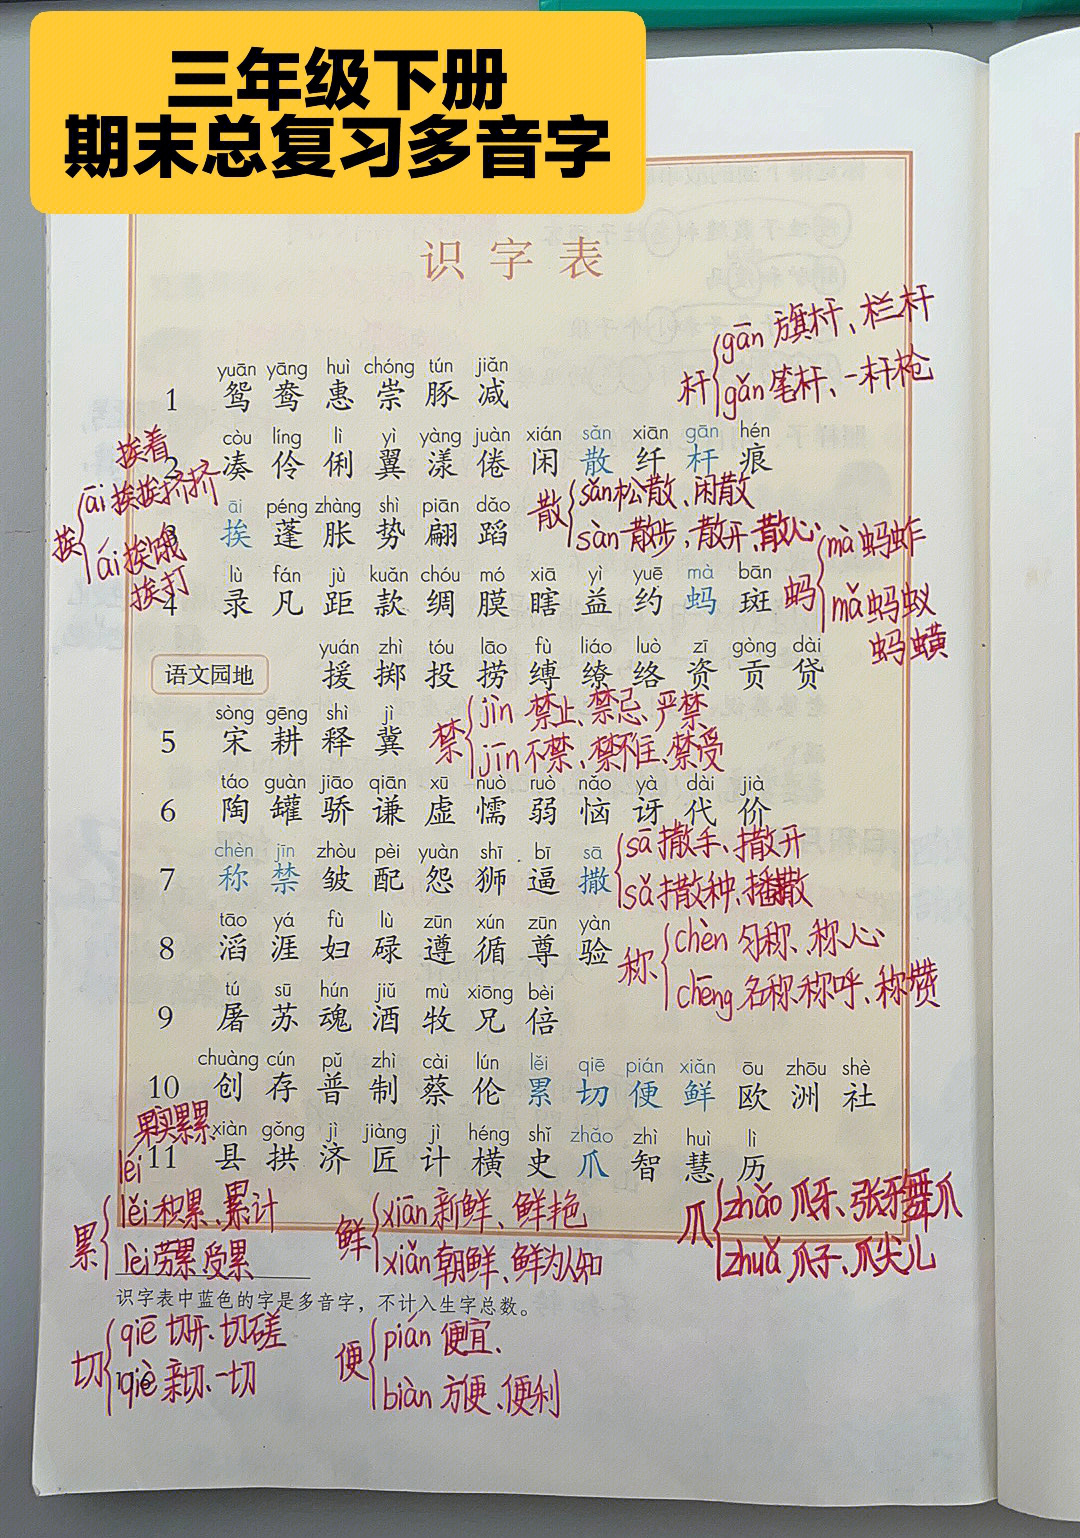 三年级下册
期末总复习多音字
识字表
yuān yāng huì chóng tún jiǎn
1 鸳 鸯 惠 崇 豚 减
còu líng lì yì yàng juàn xián sǎn xiān gān hén
2 凑 伶 俐 翼 漾 倦 闲 散 纤 杆 痕
āi péng zhàng shì piān dǎo
3 挨 蓬 胀 势 翩 蹈
lù fán jù kuǎn chóu mó xiā yì yuē mà bān
4 录 凡 距 款 绸 膜 瞎 益 约 蚂 斑
yuán zhì tóu lāo fù liáo luò zī gòng dài
语文园地 援 掷 投 捞 缚 缭 络 资 贡 贷
sòng gēng shì jì
5 宋 耕 释 冀
táo guàn jiāo qiān xū nuò ruò nǎo yà dài jià
6 陶 罐 骄 谦 虚 懦 弱 恼 讶 代 价
chèn jīn zhòu pèi yuàn shī bī sā
7 称 禁 皱 配 怨 狮 逼 撒
tāo yá fù lù zūn xún zūn yàn
8 滔 涯 妇 碌 遵 循 尊 验
tú sū hún jiǔ mù xiōng bèi
9 屠 苏 魂 酒 牧 兄 倍
chuàng cún pǔ zhì cài lún lěi qiē pián xiǎn ōu zhōu shè
10 创 存 普 制 蔡 伦 累 切 便 鲜 欧 洲 社
xiàn gǒng jì jiàng jì héng shǐ zhǎo zhì huì lì
11 县 拱 济 匠 计 横 史 爪 智 慧 历
杆
gān 旗杆、栏杆
gǎn 笔杆、一杆枪
挨
挨着
āi 挨挨挤挤
ái 挨饿
挨打
散
sǎn 松散、闲散
sàn 散步、散开、散心
蚂
mà 蚂蚱
mǎ 蚂蚁
蚂蟥
禁
jìn 禁止、禁忌、严禁
jīn 不禁、禁不住、禁受
sā 撒手、撒开
sǎ 撒种、播撒
称
chèn 匀称、称心
chēng 名称、称呼、称赞
累
果实累累
léi
lěi 积累、累计
lèi 劳累、受累
鲜
xiān 新鲜、鲜艳
xiǎn 朝鲜、鲜为人知
爪
zhǎo 爪牙、张牙舞爪
zhuǎ 爪子、爪尖儿
识字表中蓝色的字是多音字，不计入生字总数。
切
qiē 切开、切磋
qiè 亲切、一切
便
pián 便宜、
biàn 方便、便利